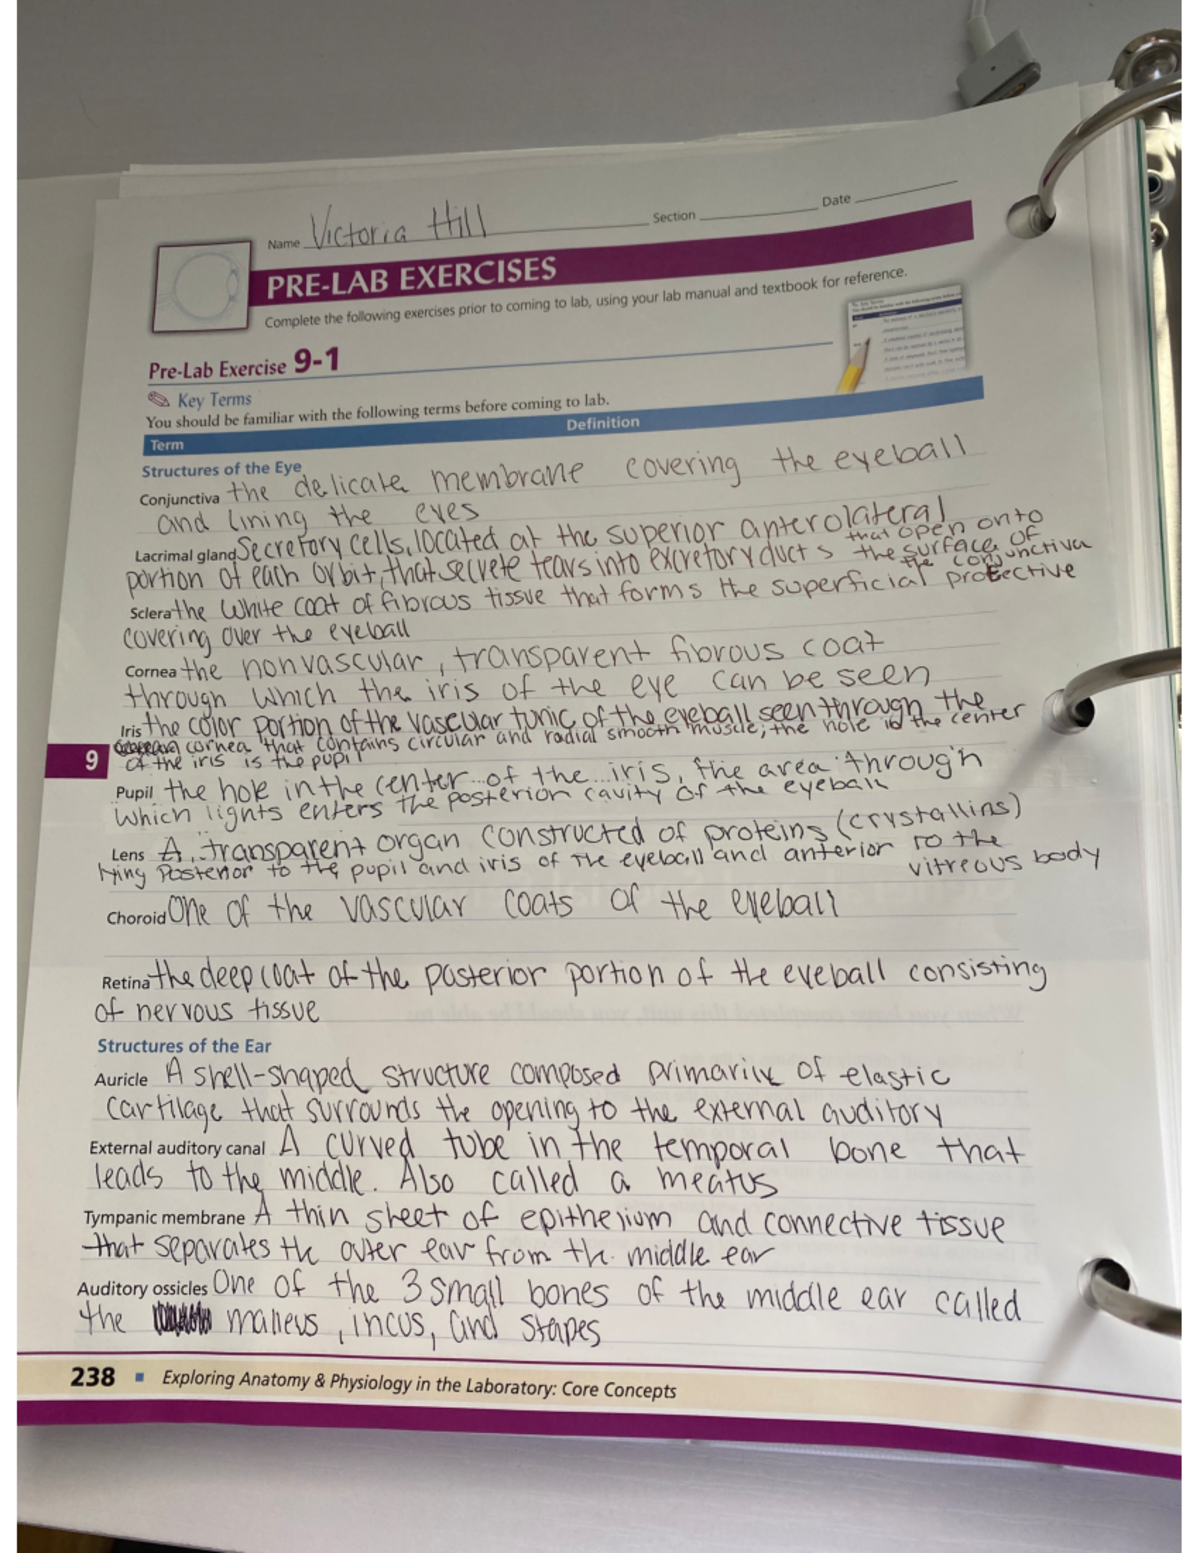 Name Victoria Hill Section Date
PRE-LAB EXERCISES
Complete the following exercises prior to coming to lab, using your lab manual and textbook for reference.
Pre-Lab Exercise 9-1
Key Terms
You should be familiar with the following terms before coming to lab.
Term Definition
Structures of the Eye
Conjunctiva the delicate membrane covering the eyeball
and lining the eyes
Lacrimal gland Secretory cells, located at the superior anterolateral
portion of each orbit, that secrete tears into excretory ducts that open onto
the surface of
the conjunctiva
Sclera the white coat of fibrous tissue that forms the superficial protective
covering over the eyeball
Cornea the nonvascular, transparent fibrous coat
through which the iris of the eye can be seen
Iris the color portion of the vascular tunic of the eyeball seen through the
cornea that contains circular and radial smooth muscle; the hole in the center
of the iris is the pupil
9
Pupil the hole in the center of the iris, the area through
which lights enters the posterior cavity of the eyeball
Lens A transparent organ constructed of proteins (crystallins)
lying posterior to the pupil and iris of the eyeball and anterior to the
vitreous body
Choroid One of the vascular coats of the eyeball
Retina the deep coat of the posterior portion of the eyeball consisting
of nervous tissue
Structures of the Ear
Auricle A shell-shaped structure composed primarily of elastic
cartilage that surrounds the opening to the external auditory
External auditory canal A curved tube in the temporal bone that
leads to the middle. Also called a meatus
Tympanic membrane A thin sheet of epithelium and connective tissue
that separates the outer ear from the middle ear
Auditory ossicles One of the 3 small bones of the middle ear called
the malleus, incus, and stapes
238 ▪ Exploring Anatomy & Physiology in the Laboratory: Core Concepts